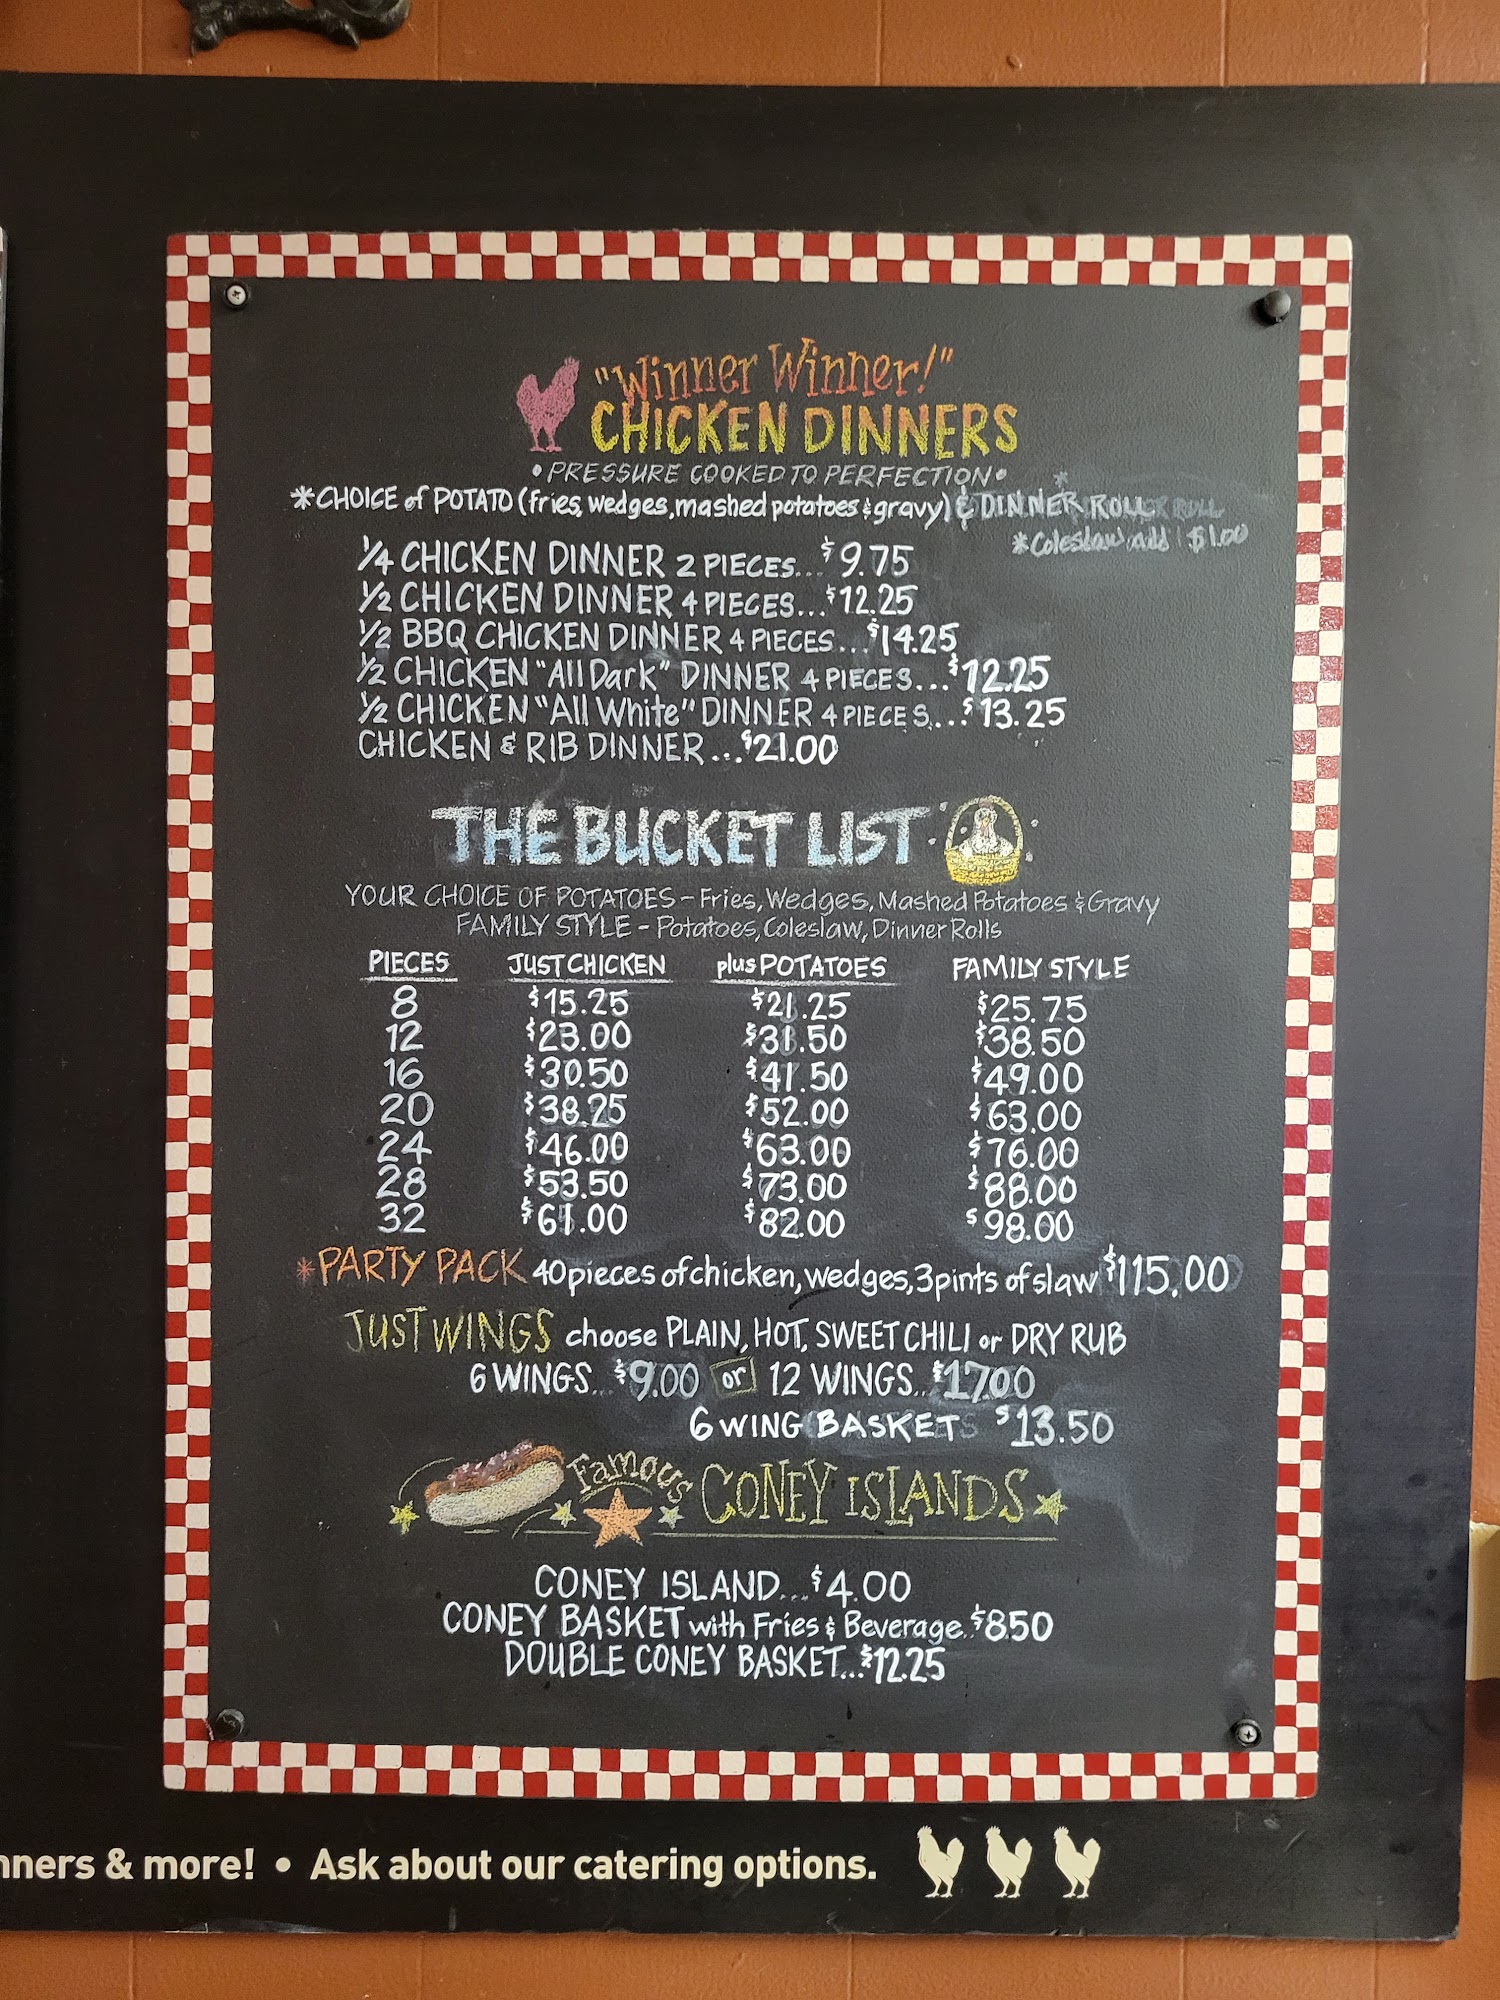 "Winner Winner!"
CHICKEN DINNERS
• PRESSURE COOKED TO PERFECTION •
*CHOICE of POTATO (fries, wedges, mashed potatoes & gravy) & DINNER ROLL
*Coleslaw add $1.00
1/4 CHICKEN DINNER 2 PIECES... $9.75
1/2 CHICKEN DINNER 4 PIECES... $12.25
1/2 BBQ CHICKEN DINNER 4 PIECES... $14.25
1/2 CHICKEN "All Dark" DINNER 4 PIECES... $12.25
1/2 CHICKEN "All White" DINNER 4 PIECES... $13.25
CHICKEN & RIB DINNER... $21.00
THE BUCKET LIST
YOUR CHOICE OF POTATOES - Fries, Wedges, Mashed Potatoes & Gravy
FAMILY STYLE - Potatoes, Coleslaw, Dinner Rolls
PIECES JUST CHICKEN plus POTATOES FAMILY STYLE
8 $15.25 $21.25 $25.75
12 $23.00 $31.50 $38.50
16 $30.50 $41.50 $49.00
20 $38.25 $52.00 $63.00
24 $46.00 $63.00 $76.00
28 $53.50 $73.00 $88.00
32 $61.00 $82.00 $98.00
*PARTY PACK 40 pieces of chicken, wedges, 3 pints of slaw $115.00
JUST WINGS choose PLAIN, HOT, SWEET CHILI or DRY RUB
6 WINGS... $9.00 or 12 WINGS.. $17.00
6 WING BASKET $13.50
Famous CONEY ISLANDS
CONEY ISLAND... $4.00
CONEY BASKET with Fries & Beverage.. $8.50
DOUBLE CONEY BASKET... $12.25
nners & more! • Ask about our catering options.